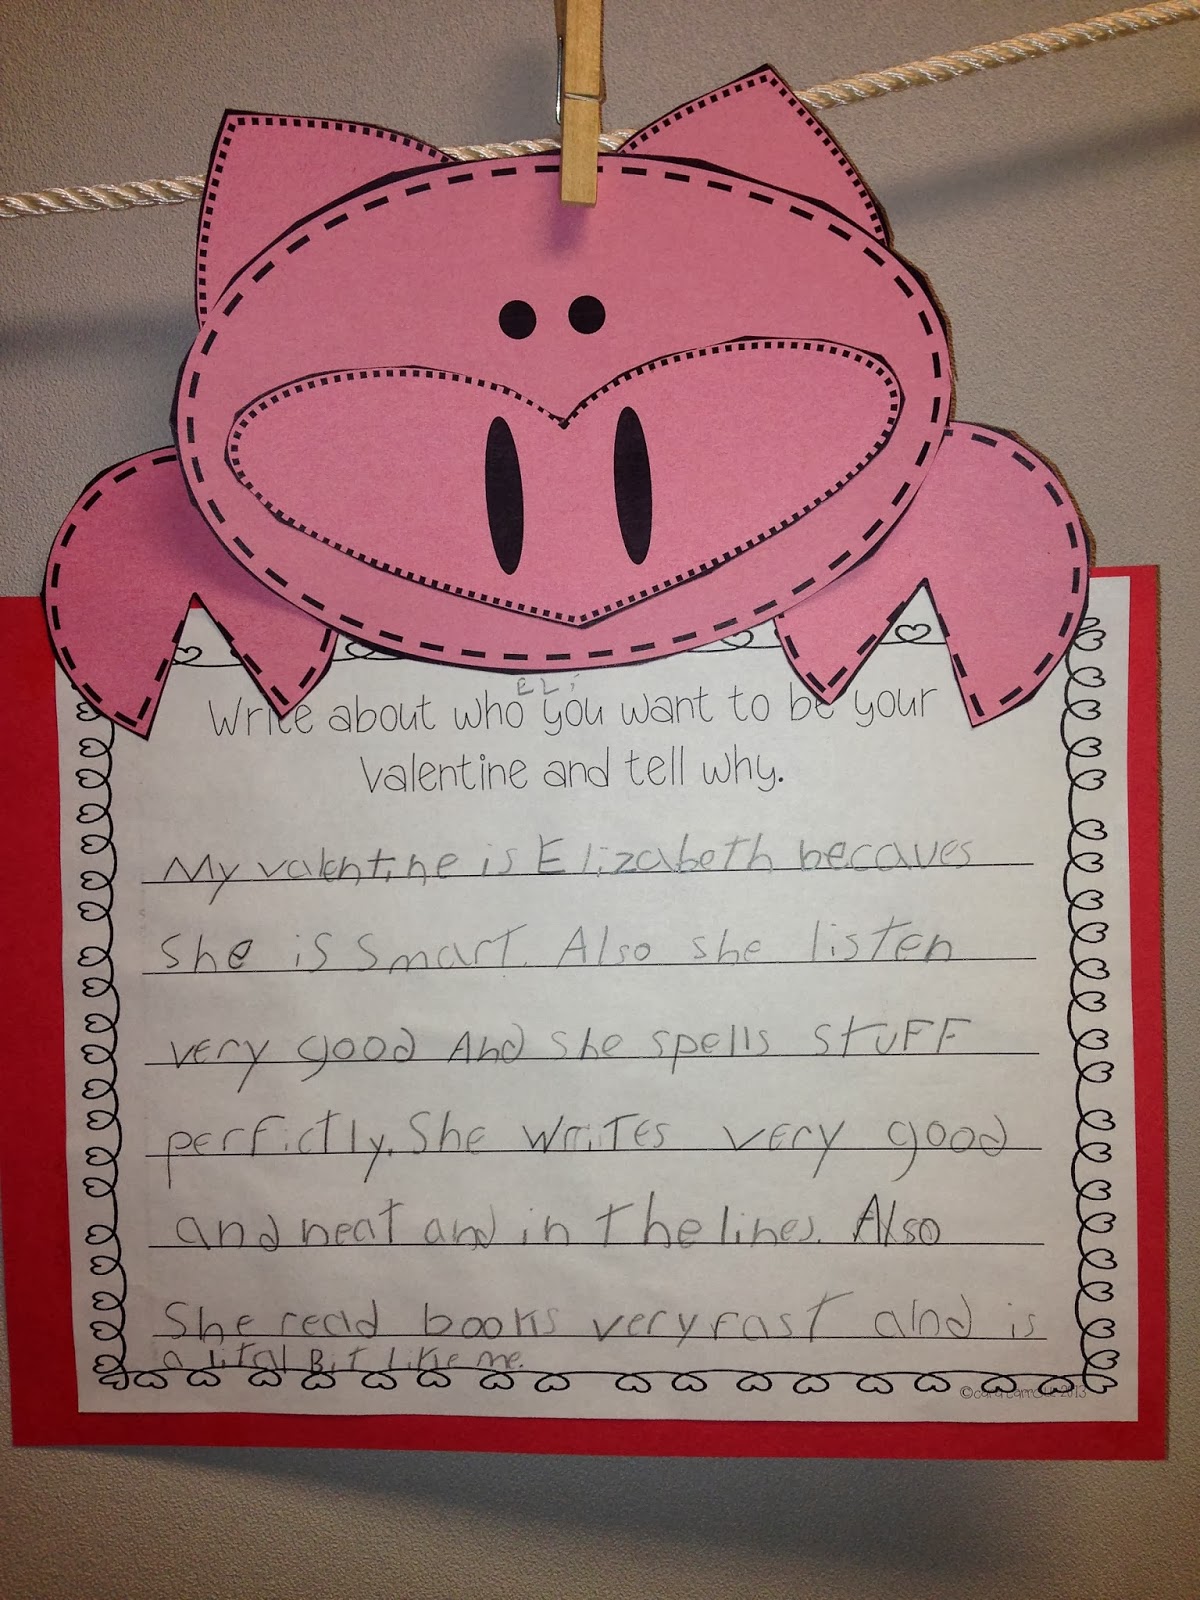 ELi
Write about who you want to be your
Valentine and tell why.
My valentine is Elizabeth becaues
She is smart. Also she listen
very good And she spells stuFF
perfictly. She writes very good
and neat and in the lines. Also
She read books very fast and is
a lital Bit Like me.
©Cara Carroll 2013